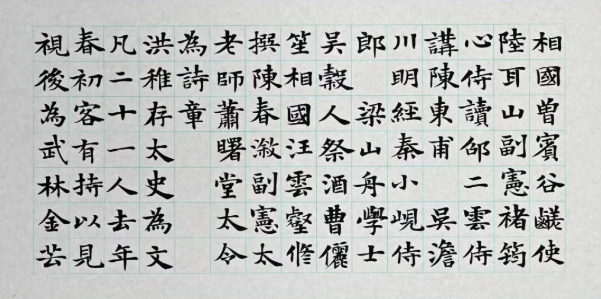 相國曾賓谷鹺使
陸耳山副憲褚筠
心侍讀邵二雲侍
講陳東甫 吳澹
川明經秦小峴侍
郎 梁山舟學士
吳穀人祭酒曹儷
笙相國汪雲壑修
撰陳春漵副憲太
老師蕭曙堂太令
為詩章
洪稚存太史為文
凡二十一人去年
春初客有持以見
視後為武林金芸